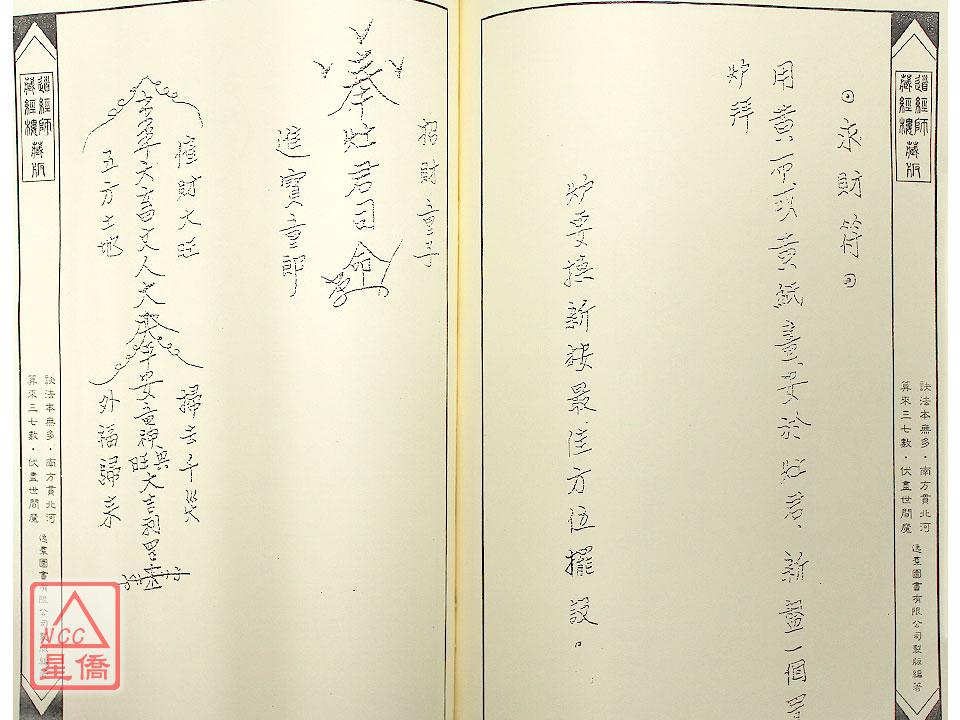 道經師
藏經樓藏版
訣法本無多・南方貫北河
算來三七數・伏盡世間魔
逸羣圖書有限公司製版編著
求財符
用黃布或黃紙畫安於灶君、新
一個
炉拜
炉要換新按最佳方位擺設。
招財童子
奉灶君司命
進寶童郎
催財大旺
五方土地
六畜
人
安
大吉利
掃去千災
外福歸來
道經師
藏經樓藏版
訣法本無多・南方貫北河
算來三七數・伏盡世間魔
逸羣圖書有限公司製版編
NCC
星僑